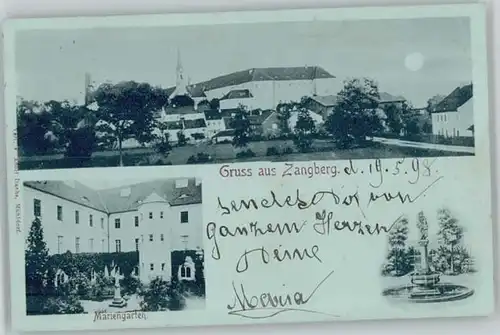 Gruss aus Zangberg. d. 19.5.98.
sendet Dir von
ganzem Herzen
Deine
Mariengarten.